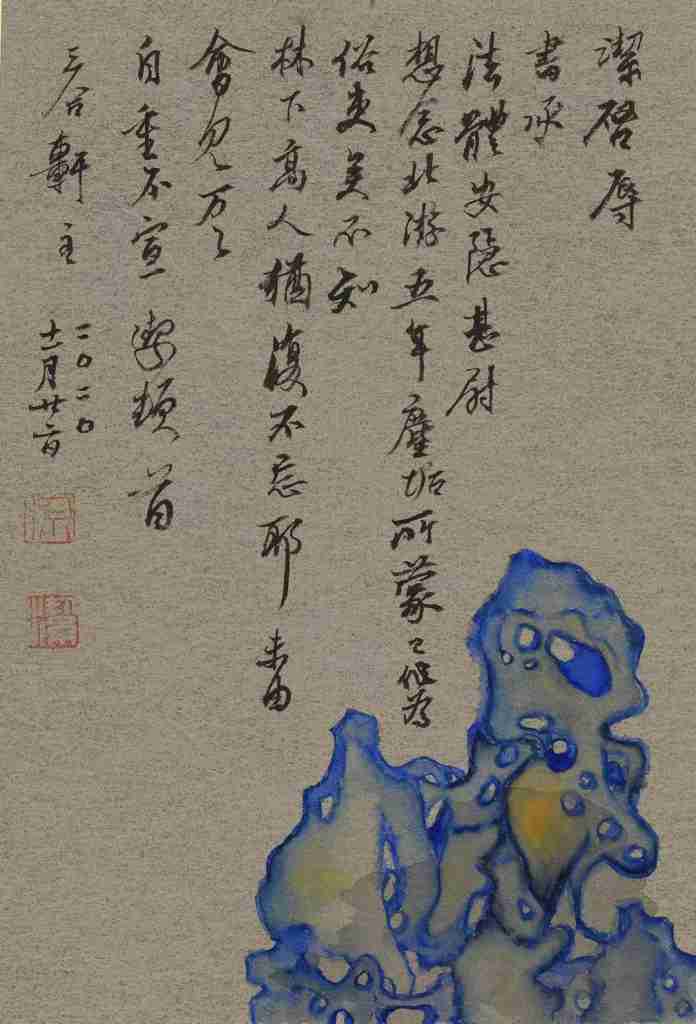 潔啓辱
書承
法體安隱甚尉
想念北游五年塵垢所蒙已化為
俗吏矣不知
林下高人猶復不忘耶未由
會見万万
自重不宣 潔頓首
三合軒主
二〇二〇
十二月廿六日